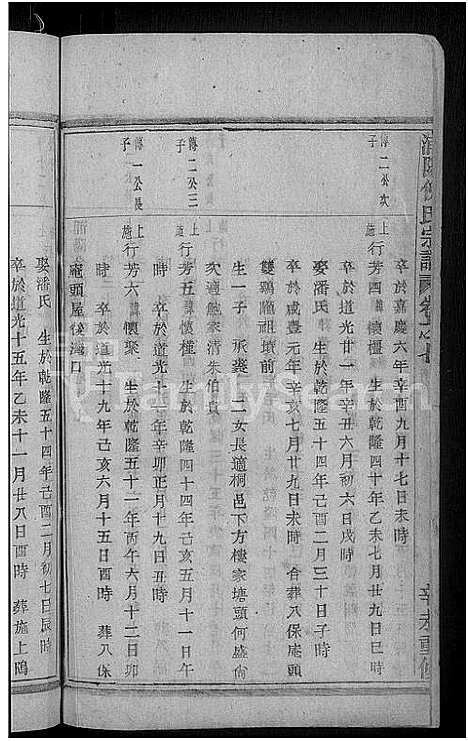 氏宗譜
辛未重修
卒於嘉慶六年辛酉九月十七日未時
傅二公次子
上施
行芳四 懷橿 生於乾隆四十年乙未七月廿九日巳時
卒於道光廿一年辛丑六月初六日戌時
娶潘氏 生於乾隆五十四年己酉二月三十日子時
卒於咸豐元年辛亥七月廿九日未時 合葬八保庵頭
雙鷄籠祖墳前
生一子 承 二女長適桐邑下方樓家塘頭何盛尚
次適鮑家清朱伯貴
傅二公三子
上施
行芳五 懷槿 生於乾隆四十四年己亥五月十一日午
時 卒於道光十一年辛卯正月十九日丑時
傅一公長子
上施
行芳六 懷聚 生於乾隆五十一年丙午六月十二日卯
時 卒於道光十九年己亥六月十五日酉時 葬八保
庵頭屋後灣口
娶潘氏 生於乾隆五十四年己酉二月初七日辰時
卒於道光十五年乙未十一月廿八日酉時 葬施上塢